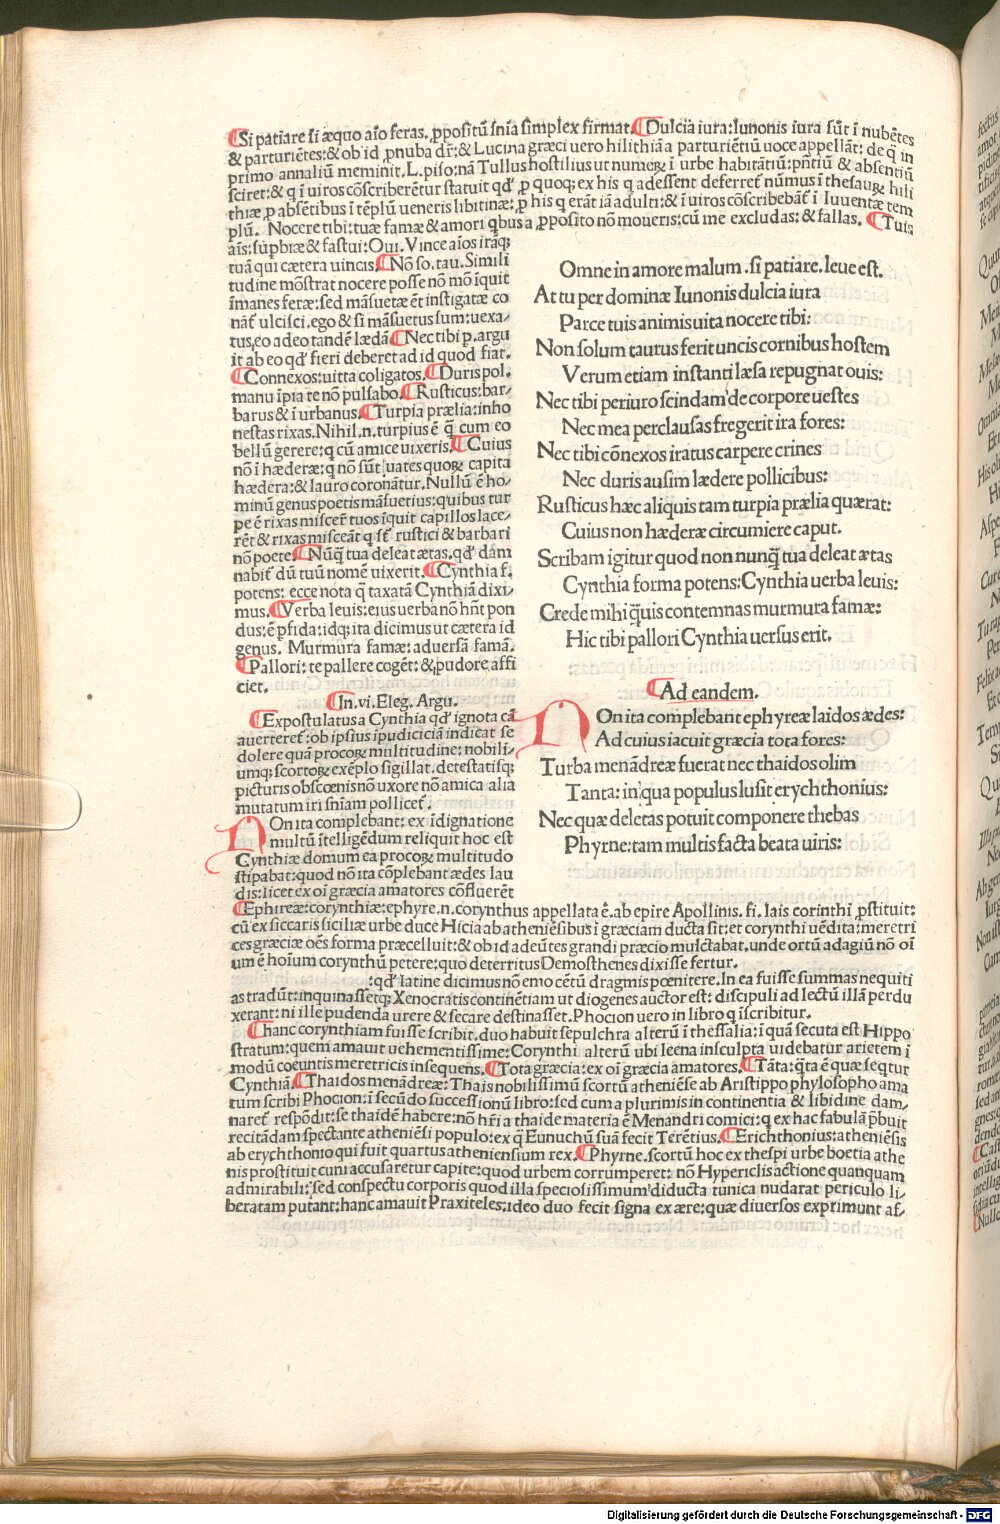 Si patiare si æquo aĩo feras. ꝓpositũ snĩa simplex firmat. Dulcia iura: Iunonis iura sũt ĩ nubẽtes
& parturiẽtes: & ob id ꝓnuba dr̃: & Lucina græci uero hilithia a parturiẽtiũ uoce appellãt: de q̃ in
primo annaliũ meminit. L. piso: nã Tullus hostilius ut numerꝝ ĩ urbe habitãtiũ: pñtiũ & absentiũ
sciret: & q ĩ uiros cõscriberẽtur statuit qđ ꝓ quoq; ex his q adessent deferret̃ nũmus ĩ thesaurꝝ hili
thiæ ꝓ absẽtibus ĩ tẽplũ ueneris libitinæ: ꝓ his q erãt iã adulti: & ĩ uiros cõscribebãt̃ ĩ Iuuentæ tem
plũ. Nocere tibi: tuæ famæ & amori qbus a ꝓposito nõ moueris: cũ me excludas: & fallas. Tuis
aĩs: supbiæ & fastui: Oui. Vince aĩos irãq;
tuã qui cætera uincis. Nõ so. tau. Simili
tudine mõstrat nocere posse nõ mõ ĩquit
ĩmanes feræ: sed mãsuetæ ẽt instigatæ co
nãt̃ ulcisci. ego & si mãsuetus sum: uexa/
tus, eo adeo tandẽ lædã. Nec tibi p. argu
it ab eo qđ fieri deberet ad id quod fiat.
Connexos: uitta coligatos. Duris pol.
manu ĩpia te nõ pulsabo. Rusticus: bar/
barus & ĩ urbanus. Turpia prælia: inho
nestas rixas. Nihil. n. turpius ẽ q̃ cum eo
bellũ gerere: q cũ amice uixeris. Cuius
nõ ĩ hæderæ: q nõ sũt uates quorꝝ capita
hædera: & lauro coronãtur. Nullũ ẽ ho/
minũ genus poetis mãsuetius: quibus tur
pe ẽ rixas miscer̃ tuos ĩquit capillos lace/
rẽt & rixas misceãt q st̃ rustici & barbari
nõ poete. Nũq̃ tua deleat ætas. qđ dãm
nabit̃ dũ tuũ nomẽ uixerit. Cynthia f.
potens: ecce nota q̃ taxatã Cynthiã dixi/
mus. Verba leuis: eius uerba nõ hñt pon
dus: ẽ pfida: idq; ita dicimus ut cætera id
genus. Murmura famæ: aduersã famã.
Pallori: te pallere coget̃: & pudore affi
ciet.
Omne in amore malum. si patiare. leue est.
At tu per dominæ Iunonis dulcia iura
Parce tuis animis uita nocere tibi:
Non solum taurus ferit uncis cornibus hostem
Verum etiam instanti læsa repugnat ouis:
Nec tibi periuro scindam de corpore uestes
Nec mea perclausas fregerit ira fores:
Nec tibi cõnexos iratus carpere crines
Nec duris ausim lædere pollicibus:
Rusticus hæc aliquis tam turpia prælia quærat:
Cuius non hæderæ circumiere caput.
Scribam igitur quod non nunq̃ tua deleat ætas
Cynthia forma potens: Cynthia uerba leuis:
Crede mihi q̃uis contemnas murmura famæ:
Hic tibi pallori Cynthia uersus erit.
Ad eandem.
NOn ita complebant ephyreæ laidos ædes:
Ad cuius iacuit græcia tota fores:
Turba menãdreæ fuerat nec thaidos olim
Tanta: in qua populus lusit erychthonius:
Nec quæ deletas potuit componere thebas
Phyrne: tam multis facta beata uiris:
In. vi. Eleg. Argu.
Expostulatus a Cynthia qđ ignota cã
auerteret̃: ob ipsius ĩpudiciciã indicat se
dolere quã procorꝝ multitudine: nobili/
umq; scortorꝝ exẽplo sigillat. detestatisq;
picturis obscœnis nõ uxore nõ amica alia
mutatum iri sniam pollicet̃.
NOn ita complebant: ex ĩdignatione
multũ ĩtelligẽdum reliquit hoc est
Cynthiæ domum ea procorꝝ multitudo
stipabat: quod nõ ita cõplebant ædes lau
dis: licet ex oĩ græcia amatores cõfluerẽt
Ephireæ: corynthiæ: ephyre. n. corynthus appellata ẽ. ab epire Apollinis. fi. lais corinthi ꝓstituit:
cũ ex siccaris siciliæ urbe duce Hicia ab atheniẽsibus ĩ græciam ducta sit: et corynthi uẽdita: meretri
ces græciæ oẽs forma præcelluit: & ob id adeũtes grandi præcio mulctabat. unde ortũ adagiũ nõ oĩ
um ẽ hoĩum corynthũ petere: quo deterritus Demosthenes dixisse fertur.
: qđ latine dicimus nõ emo cẽtũ dragmis pœnitere. In ea fuisse summas nequiti
as tradũt: inquinassetq; Xenocratis continẽtiam ut diogenes auctor est: discipuli ad lectũ illã perdu
xerant: ni ille pudenda urere & secare destinasset. Phocion uero in libro q ĩscribitur.
hanc corynthiam fuisse scribit. duo habuit sepulchra alterũ ĩ thessalia: ĩ quã secuta est Hippo
stratum: quem amauit uehementissime: Corynthi alterũ ubi leena insculpta uidebatur arietem ĩ
modũ coeuntis meretricis insequens. Tota græcia: ex oĩ græcia amatores. Tãta: q̃ta ẽ quæ seqtur
Cynthiã. Thaidos menãdreæ: Thais nobilissimũ scortũ atheniẽse ab Aristippo phylosopho ama
tum scribi Phocion: ĩ secũdo successionũ libro: sed cum a plurimis in continentia & libidine dam/
naret̃ respõdit: se thaidẽ habere: nõ hr̃i a thaide materia ẽ Menandri comici: q ex hac fabulã p̃buit
recitãdam spectante atheniẽsi populo: ex q̃ Eunuchũ suã fecit Terẽtius. Erichthonius: atheniẽsis
ab erychthonio qui fuit quartus atheniensium rex. Phyrne. scortũ hoc ex thespi urbe boetia athe
nis prostituit cuni accusaretur capite: quod urbem corrumperet: nõ Hypericlis actione quanquam
admirabili: sed conspectu corporis quod illa speciosissimum diducta tunica nudarat periculo li/
beratam putant: hanc amauit Praxiteles: ideo duo fecit signa ex ære: quæ diuersos exprimunt af/
Digitalisierung gefördert durch die Deutsche Forschungsgemeinschaft - DFG